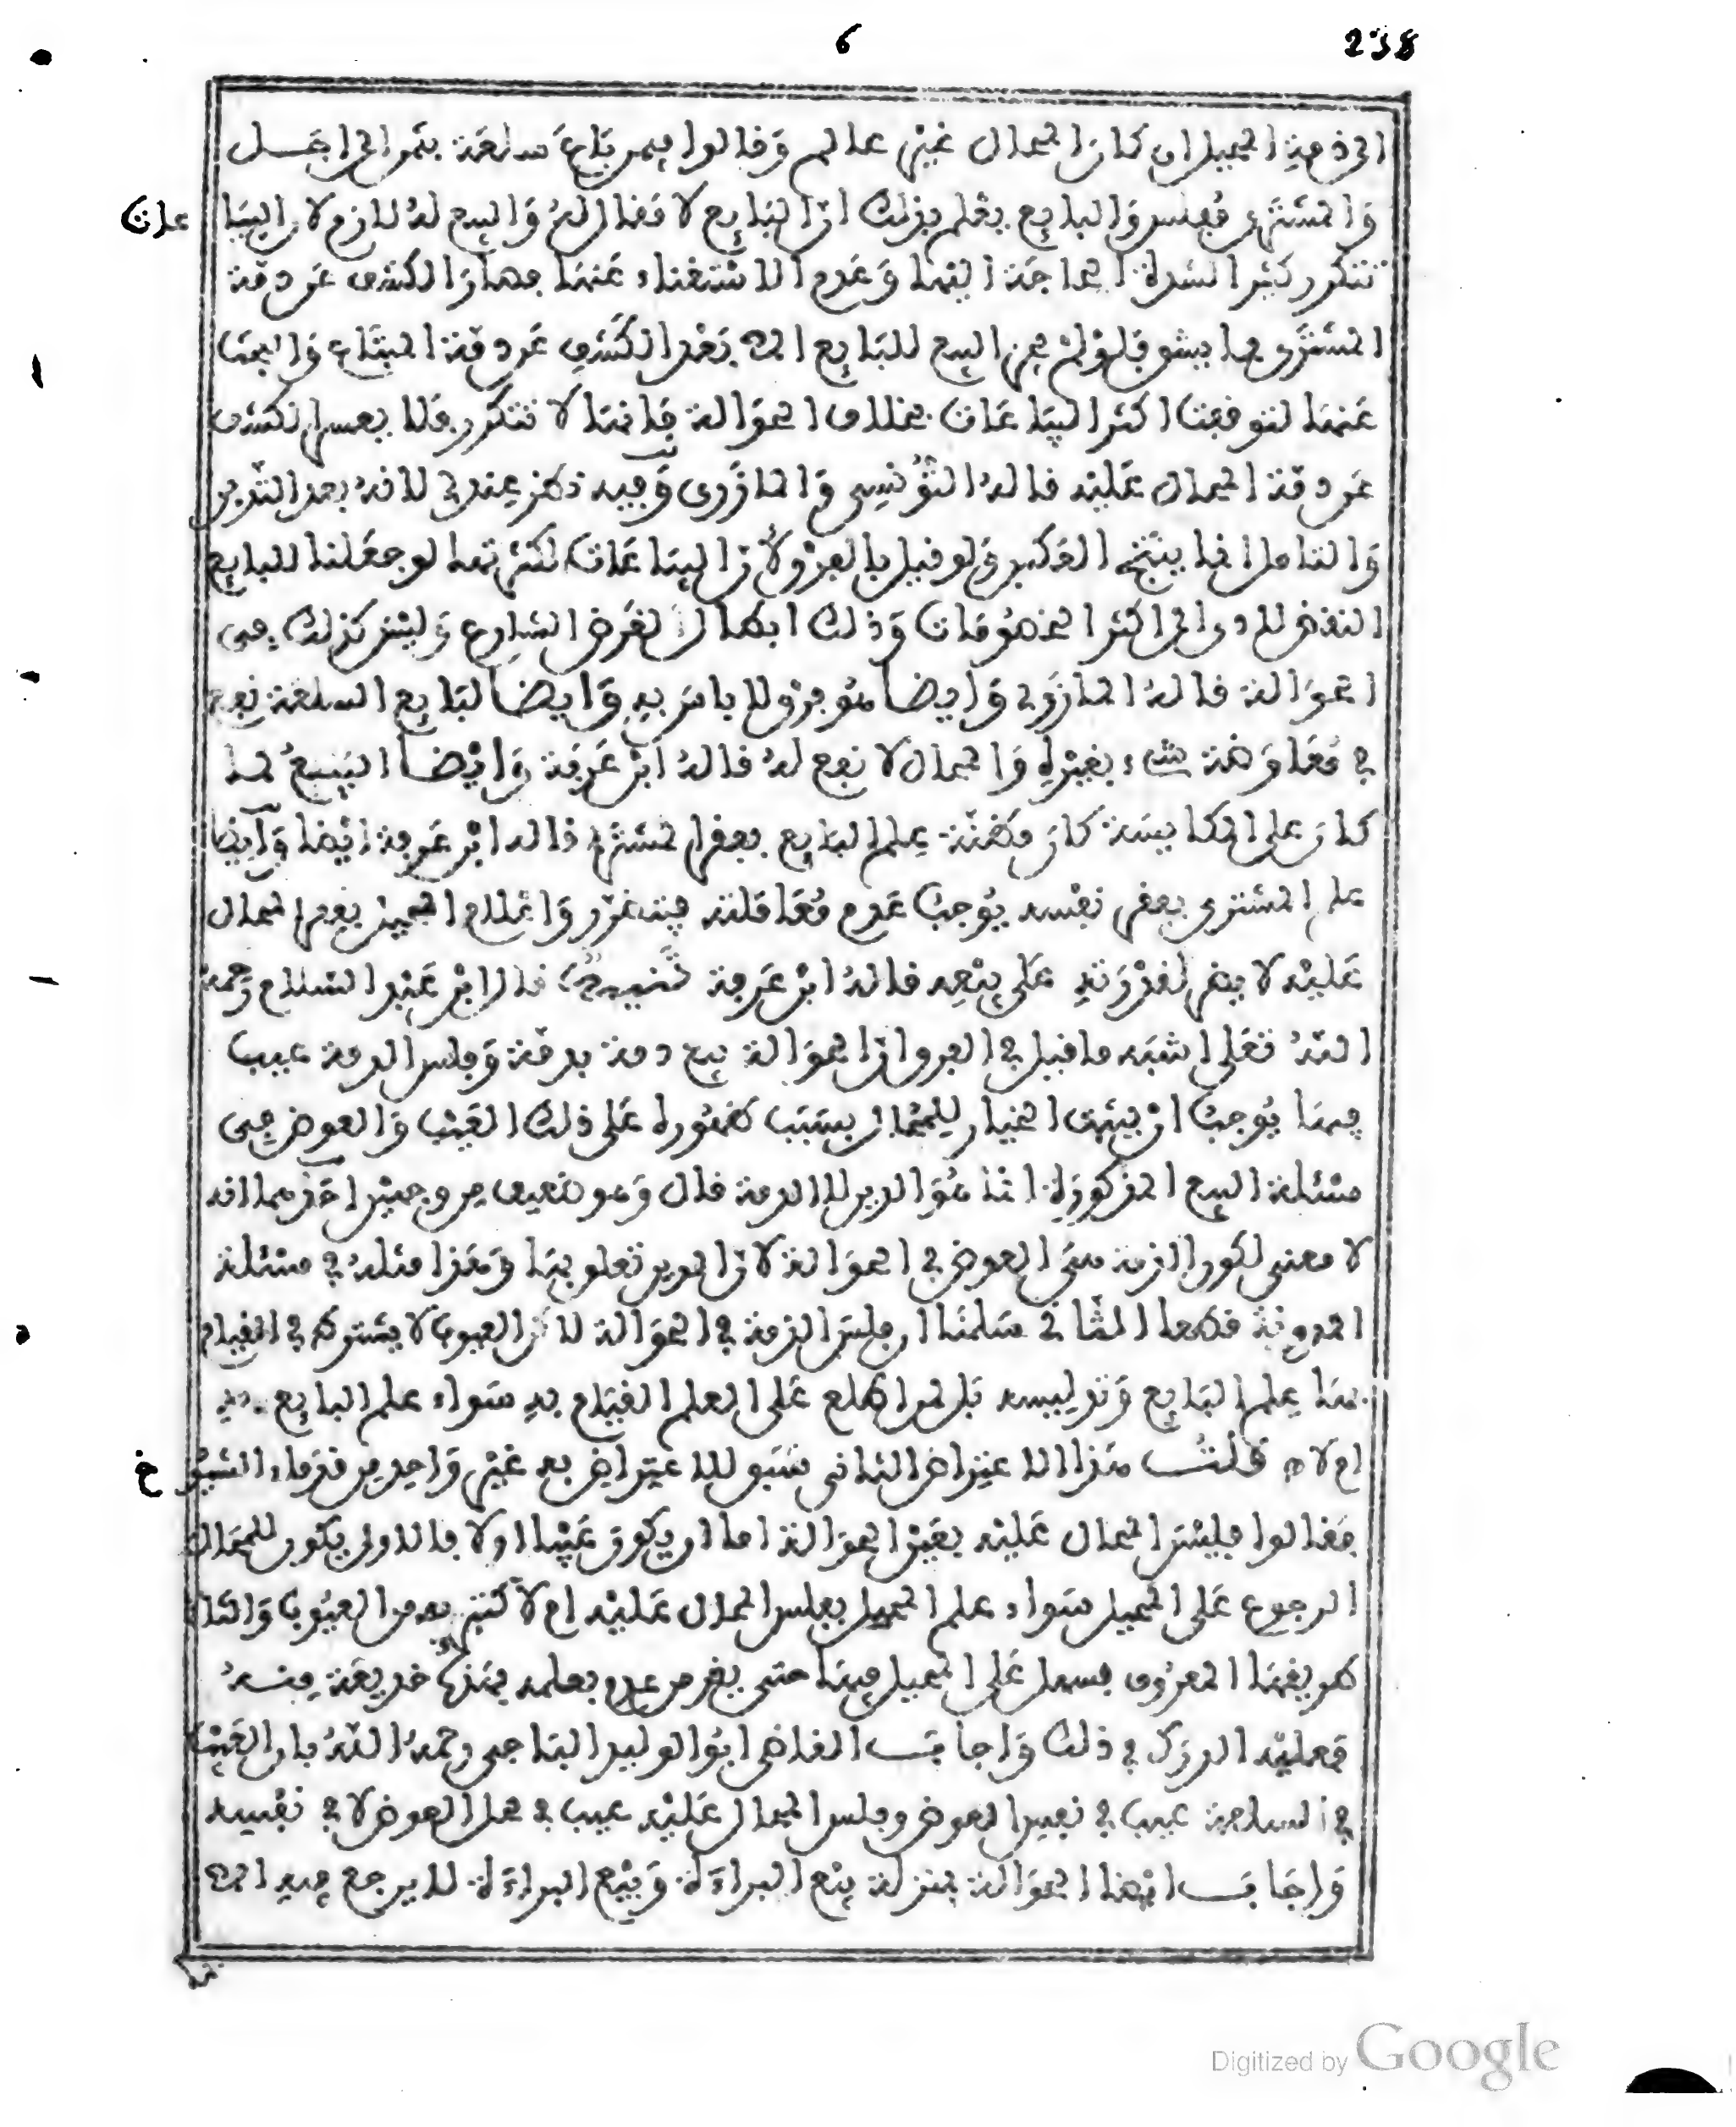 6 238
الى ذمة المحيل ان كان المحال غير عالم وقالوا فيمن باع سلعة بثمن الى اجل
والمشترى مفلس والبايع يعلم بذلك ان البايع لا مقال له والبيع له لازم لان البيا عات
تتكرر كثيرا لشدة الحاجة اليها وعدم الاستغناء عنها فصار الكشف عن ذمة
المشترى مما يشق فلو لم يمض البيع للبايع الا بعد الكشف عن ذمة المبتاع والبحث
عنها لتوقفت اكثر البياعات بخلاف الحوالة فانها لا تتكرر فلا يعسر الكشف
عن ذمة المحال عليه قاله التونسي والمازري وفيه نظر عندي لانه بعد التدبر
والتامل انما ينتج العكس ولو قيل بالفرق لان البياعات لكثرتها لو جعلنا للبايع
النقض لادى الى اكثر الخصومات وذلك ابطال لغرض الشارع وليس كذلك في
الحوالة قاله المازري وايضا هو فرق لا باس به وايضا لبايع السلعة نفع
في معاوضة شيء بغيره والمحال لا نفع له قاله ابن عرفة وايضا البيع لما
كان على المكايسة كان مظنة علم البايع بفقر المشترى قاله ابن عرفة ايضا وايضا
علم المشترى بفقر نفسه يوجب عدم معاملته فيه غرر واعلام المحيل بفقر المحال
عليه لا يضر لقدرته على بيعه قاله ابن عرفة تنبيه قال ابن عبد السلام رحمه
الله تعلى اشبه ما قيل في الفرق ان الحوالة بيع ذمة بذمة وفلس الذمة عيب
فيها يوجب ان يثبت الخيار للمحال بسبب ظهوره على ذلك العيب والعوض في
مسئلة البيع المذكورة انما هو الدين لا الذمة قال وهو ضعيف من وجهين احدهما انه
لا معنى لكون الذمة هي العوض في الحوالة لان الدين تعلق بها وهذا مثله في مسئلة
المدونة قطعا الثاني سلمنا ان فلس الذمة في الحوالة لاكن العيوب لا يشترط في القيام
بها علم البايع وتدليسه بل لمن اطلع على العلم القيام به سواء علم البايع به
ام لا قلت هذا الاعتراض الثاني سبق للاعتراض به غير واحد من قدماء الشيوخ
فقالوا فليس المحال عليه بعين الحوالة اما ان يكون عيبا اولا فالاول يكون للمحال
الرجوع على المحيل سواء علم المحيل بفلس المحال عليه ام لا كغيره من العيوب والثاني
طريقها المعروف فسهل على المحيل فيها حتى يغر من عدم بعلمه فهذه خديعة منه
فعليه الدرك في ذلك واجاب القاضي ابو الوليد الباجي رحمه الله بان العيب
في السلعة عيب في نفس العوض وفلس المحال عليه عيب في محل العوض لا في نفسه
واجاب ايضا الحوالة بمنزلة بيع البراءة وبيع البراءة لا يرجع فيه الا